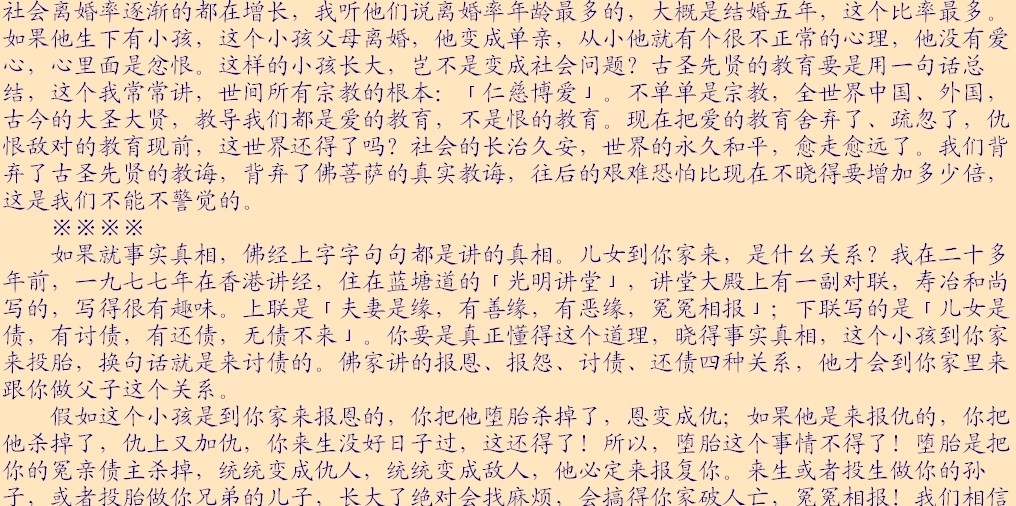 社会离婚率逐渐的都在增长，我听他们说离婚率年龄最多的，大概是结婚五年，这个比率最多。
如果他生下有小孩，这个小孩父母离婚，他变成单亲，从小他就有个很不正常的心理，他没有爱
心，心里面是忿恨。这样的小孩长大，岂不是变成社会问题？古圣先贤的教育要是用一句话总
结，这个我常常讲，世间所有宗教的根本：「仁慈博爱」。不单单是宗教，全世界中国、外国，
古今的大圣大贤，教导我们都是爱的教育，不是恨的教育。现在把爱的教育舍弃了、疏忽了，仇
恨敌对的教育现前，这世界还得了吗？社会的长治久安，世界的永久和平，愈走愈远了。我们背
弃了古圣先贤的教诲，背弃了佛菩萨的真实教诲，往后的艰难恐怕比现在不晓得要增加多少倍，
这是我们不能不警觉的。
※※※※
如果就事实真相，佛经上字字句句都是讲的真相。儿女到你家来，是什么关系？我在二十多
年前，一九七七年在香港讲经，住在蓝塘道的「光明讲堂」，讲堂大殿上有一副对联，寿冶和尚
写的，写得很有趣味。上联是「夫妻是缘，有善缘，有恶缘，冤冤相报」；下联写的是「儿女是
债，有讨债，有还债，无债不来」。你要是真正懂得这个道理，晓得事实真相，这个小孩到你家
来投胎，换句话就是来讨债的。佛家讲的报恩、报怨、讨债、还债四种关系，他才会到你家里来
跟你做父子这个关系。
假如这个小孩是到你家来报恩的，你把他堕胎杀掉了，恩变成仇；如果他是来报仇的，你把
他杀掉了，仇上又加仇，你来生没好日子过，这还得了！所以，堕胎这个事情不得了！堕胎是把
你的冤亲债主杀掉，统统变成仇人，统统变成敌人，他必定来报复你。来生或者投生做你的孙
子，或者投胎做你兄弟的儿子，长大了绝对会找麻烦，会搞得你家破人亡，冤冤相报！我们相信